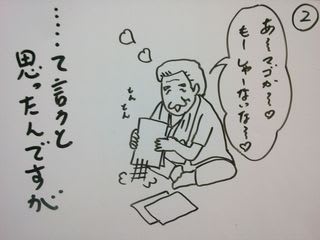 ②
あ〜マゴが〜♡
もーしゃーないな〜♡
とんとん
……て言うと
思ったんですが